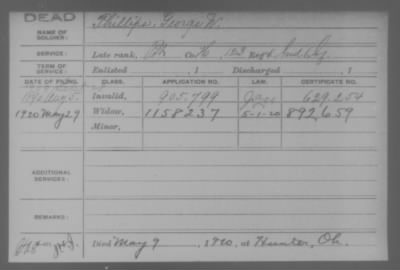 DEAD
NAME OF SOLDIER: Phillips, George W.
SERVICE: Late rank, Pvt Co. K, 123 Reg't Ind Inf
TERM OF SERVICE: Enlisted , 1 Discharged , 1
DATE OF FILING. CLASS. APPLICATION NO. LAW. CERTIFICATE NO.
1890 Aug 5. Invalid, 905,799 629,254
1920 May 29 Widow, 1158237 5-1-20 892,659
Minor,
ADDITIONAL SERVICES:
REMARKS:
Died May 9, 1920, at Hunter, Oh.